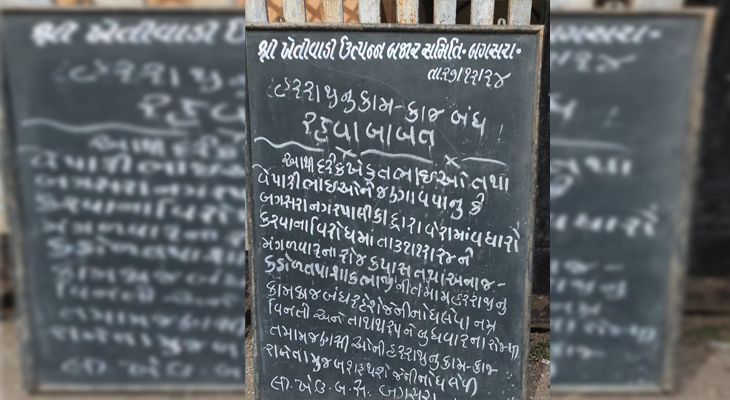 શ્રી ખેતીવાડી ઉત્પન્ન બજાર સમિતિ-બગસરા-
હરરાજીનુ કામ-કાજ બંધ
રહેવા બાબત
આથી દરેક ખેડુતભાઇઓ તથા
વેપારીભાઇઓને જણાવવાનુ કે
બગસરા નગરપાલીકા દ્રારા વેરામાં વધારો
કરવાના વિરોધમાં તા.૩૧/૧૨/૨૪ ને
મંગળવારના રોજ કપાસ તથા અનાજ-
કઠોળ તથા શાકભાજી ની તમામ હરરાજીનુ
કામકાજ બંધ રહેશે જેની નોંધ લેવા નમ્ર
વિનંતી અને તા.૧/૧/૨૫ ને બુધવારના રોજથી
તમામ જણસીઓની હરરાજીનુ કામ-કાજ
રાબેતા મુજબ શરૂ થશે જેની નોંધ લેશો
લી. ખે.ઉ.બ.સ. બગસરા